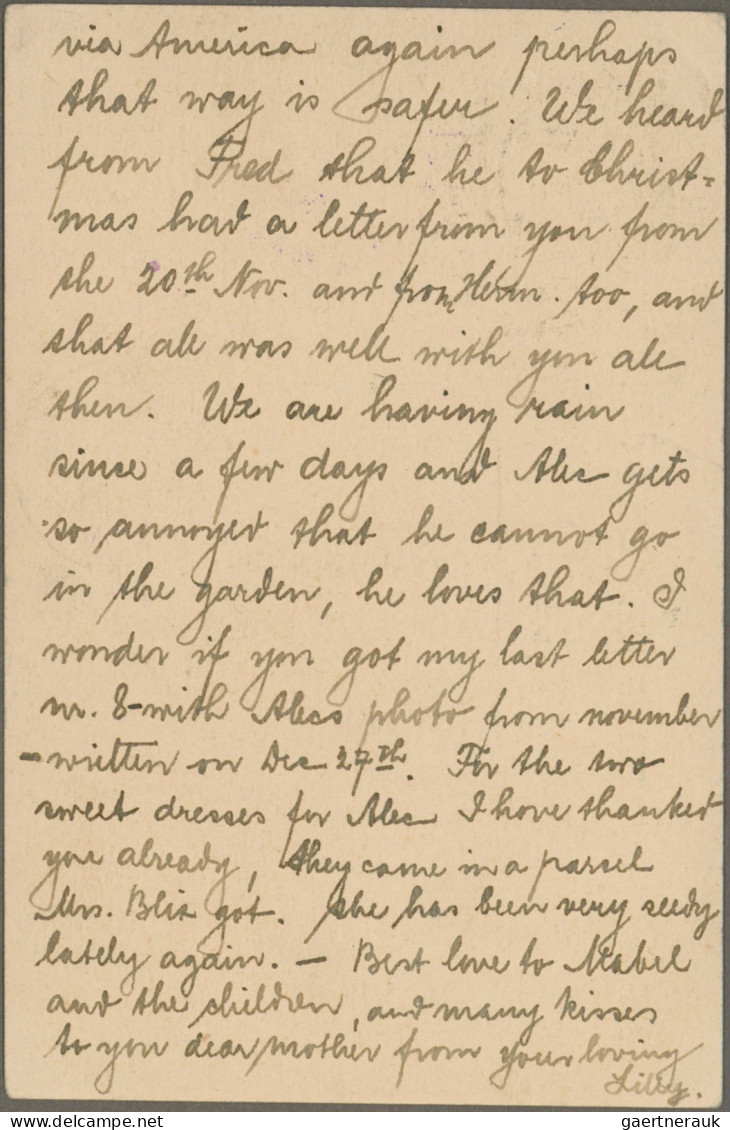 via America again perhaps
that way is safer. We heard
from Fred that he to Christ=
mas had a letter from you from
the 20th Nov. and from Herm. too, and
that all was well with you all
then. We are having rain
since a few days and Alec gets
so annoyed that he cannot go
in the garden, he loves that. I
wonder if you got my last letter
nr. 8 - with Alecs photo from november
- written on Dec 27th. For the two
sweet dresses for Alec I have thanked
you already, they came in a parsel
Mrs. Blix got. She has been very seedy
lately again. — Best love to Mabel
and the children, and many kisses
to you dear mother from your loving
Lilly.
gaertnerauk